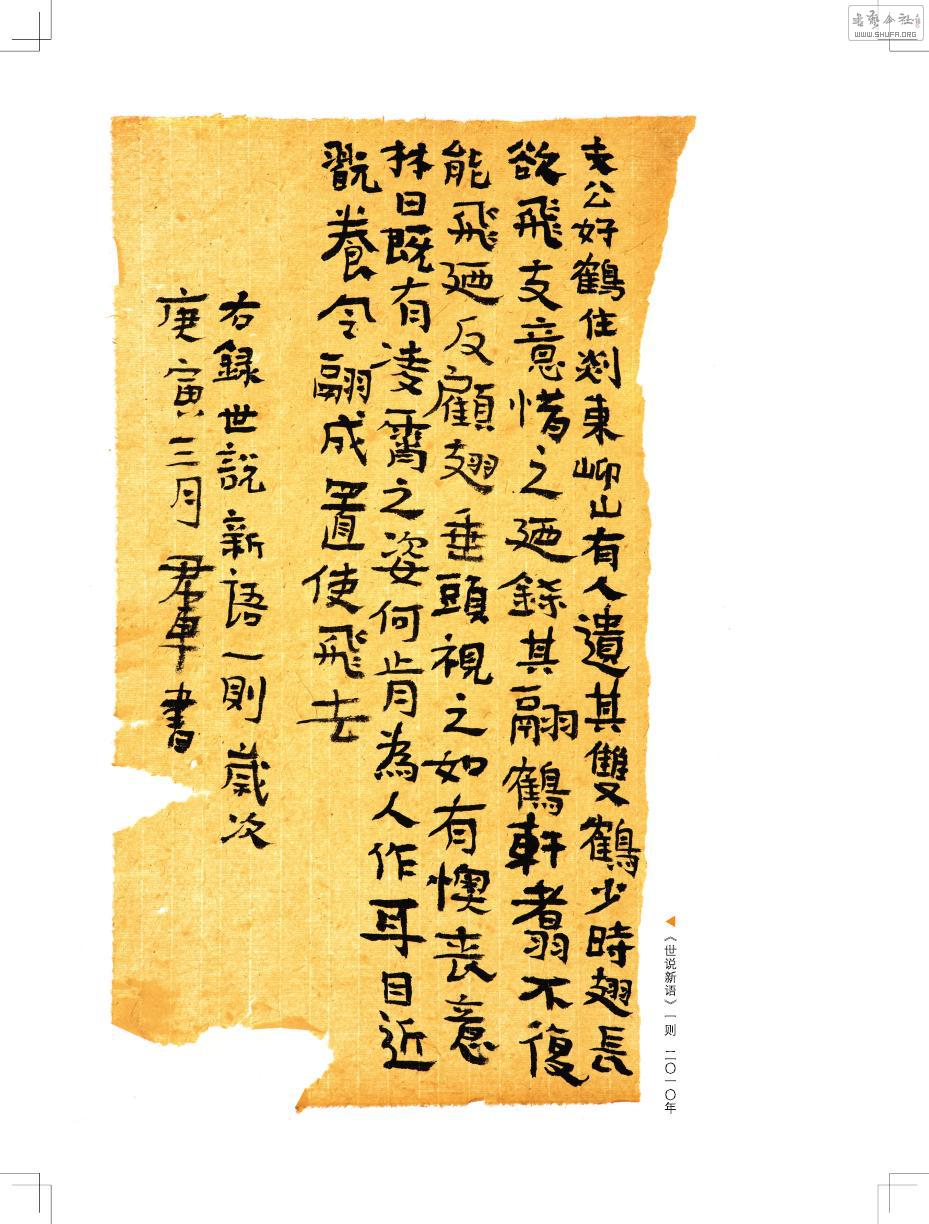 支公好鶴住剡東岇山有人遺其雙鶴少時翅長
欲飛支意惜之廼鎩其翮鶴軒翥不復
能飛廼反顧翅垂頭視之如有懊喪意
林曰既有凌霄之姿何肯為人作耳目近
翫養令翮成置使飛去
右録世説新語一則歲次
庚寅三月 書
《世说新语》一则 二〇一〇年
书艺公社
WWW.SHUFA.ORG